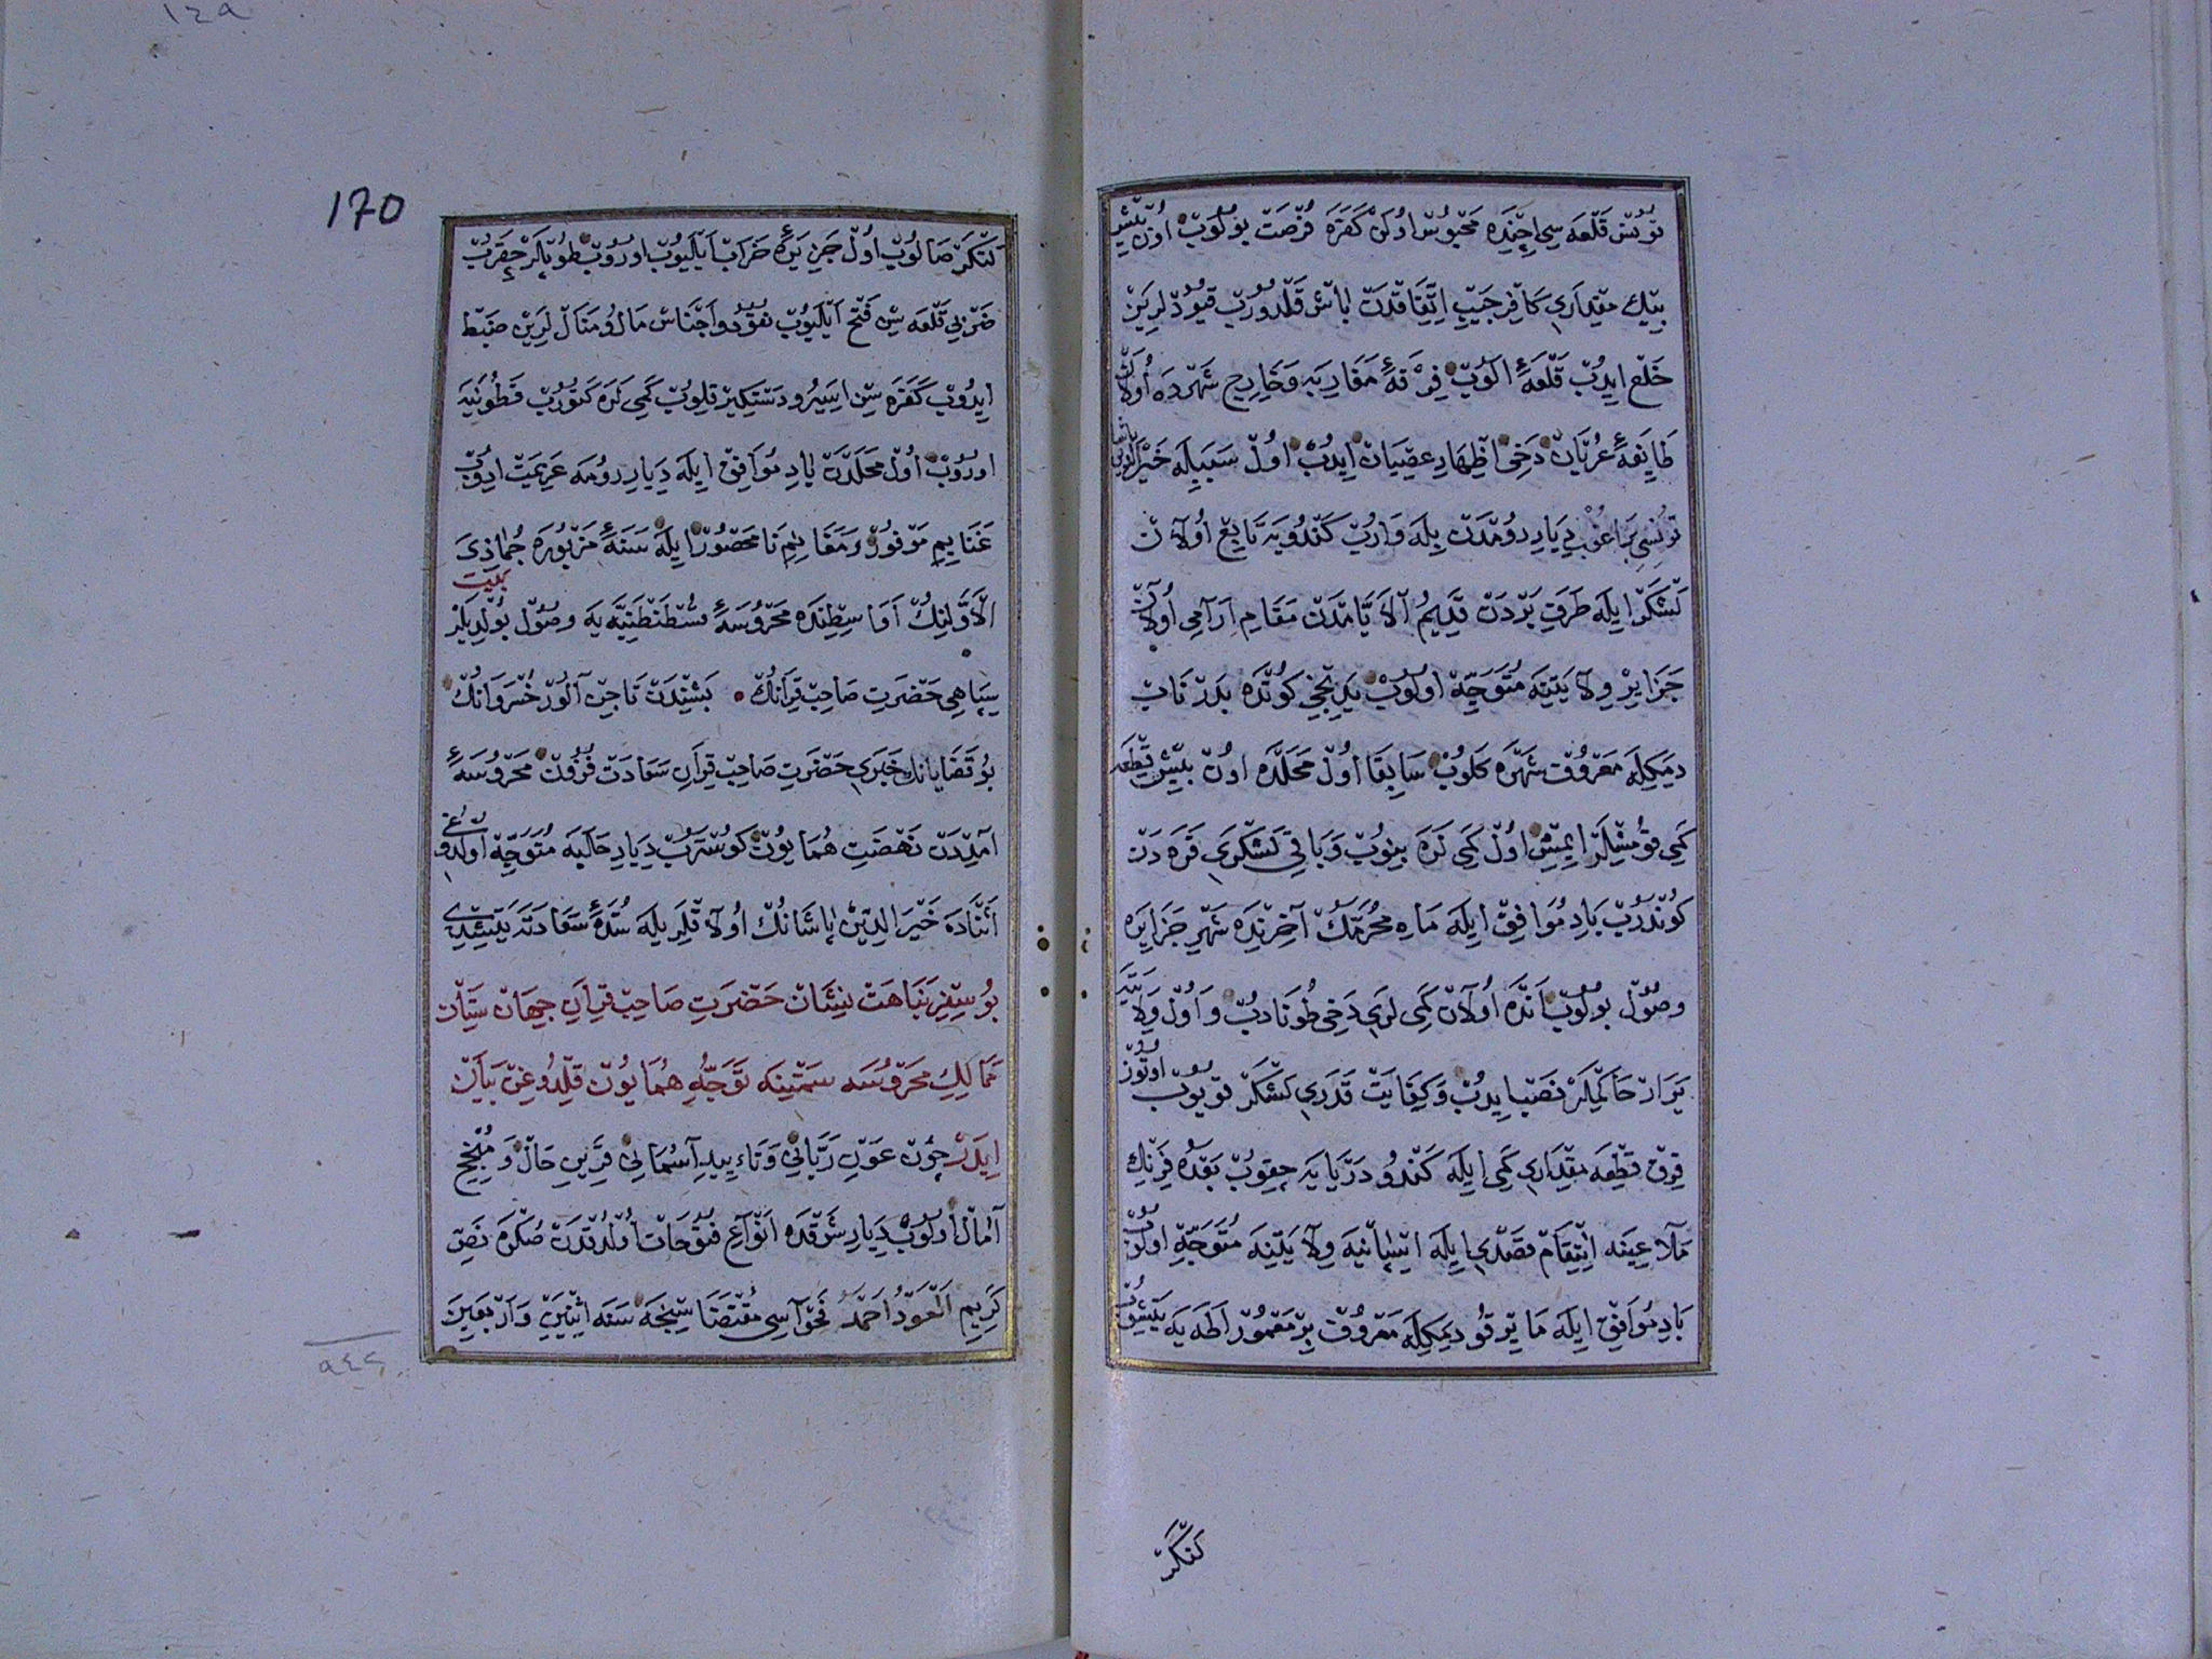 تونس قلعه سی اچنده محبوس اولن کفره فرصت بولوب اون بش
بیك مقداری کافر جیب اتفاقدن باش قلدورب قیودلرین
خلع ایدب قلعهء الوب فرقهء مغاربه و خارج شهرده اولان
طایفهء عربان دخی اظهار عصیان ایدب اول سببیله خیر الدین پاشا
تونسی براغب دیار رومدن بیله وارب کندویه تابع اولان
لشکر ایله طرف بردن قدیم الایامدن مقام ارامی اولان
جزایر ولایتنه متوجه اولوب یدنجی کونده بلد ناب
دیمکله معروف شهره کلوب سابقا اول محلده اون بش قطعه
کمی قومشلر ایمش اول کمی لره بنوب و باقی لشکری قره دن
کوندرب باد موافق ایله ماه محرمك آخرنده شهر جزایره
وصول بولوب انده اولان کمی لری دخی طونادب و اول ولایته
یرار حاکملر نصب ایدب و کفایت قدری لشکر قویوب اوتوز
قرق قطعه مقداری کمی ایله کندو دریایه چقوب بعده فرنك
ملاعینه انتقام قصدی ایله اسپانیه ولایتنه متوجه اولوب
باد موافق ایله مایورقو دیمکله معروف بر معمور اطه یه یتشوب
لنکر
170
١٤٩
لنکر صالوب اول جزیرهء خراب ایلیوب اوروب طوپلر چقرب
ضربی قلعه سین فتح ایلیوب نقود و اجناس مال و منال لرین ضبط
ایدوب کفره سین اسیر و دستکیر قلوب کمی لره کتورب قطونیه
اوروب اول محلدن باد موافق ایله دیار رومه عزیمت ادوب
غنایم موفور و مغانم نا محصور ایله سنهء مزبوره جماذی
الاولینك اواسطنده محروسهء قسطنطنیه یه وصول بولدیلر بیت
سپاهی حضرت صاحب قرانك • بشندن تاجین آلور خسروانك
بو قضایانك خبری حضرت صاحب قران سعادت قرون محروسهء
آمددن نهضت همایون کوسترب دیار حالیه متوجه اولدوغی
اثناده خیر الدین پاشانك اولاقلریله سدهء سعادته یتشدی
بو سفر نباهت نشان حضرت صاحب قران جهان ستان
ممالك محروسه سمتینه توجه همایون قلدوغین بیان
ایدر چون عون ربانی و تایید آسمانی قرین حال و منجح
آمال اولوب دیار شرقده انواع فتوحات اولدقدن صکره نص
کریم العود احمد فحواسی مقتضاسنجه سنه اثنین و اربعین
٩٤٢